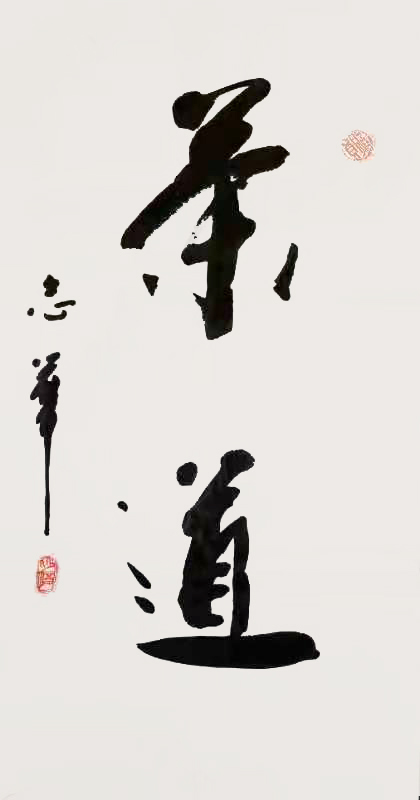 茶
道
志華